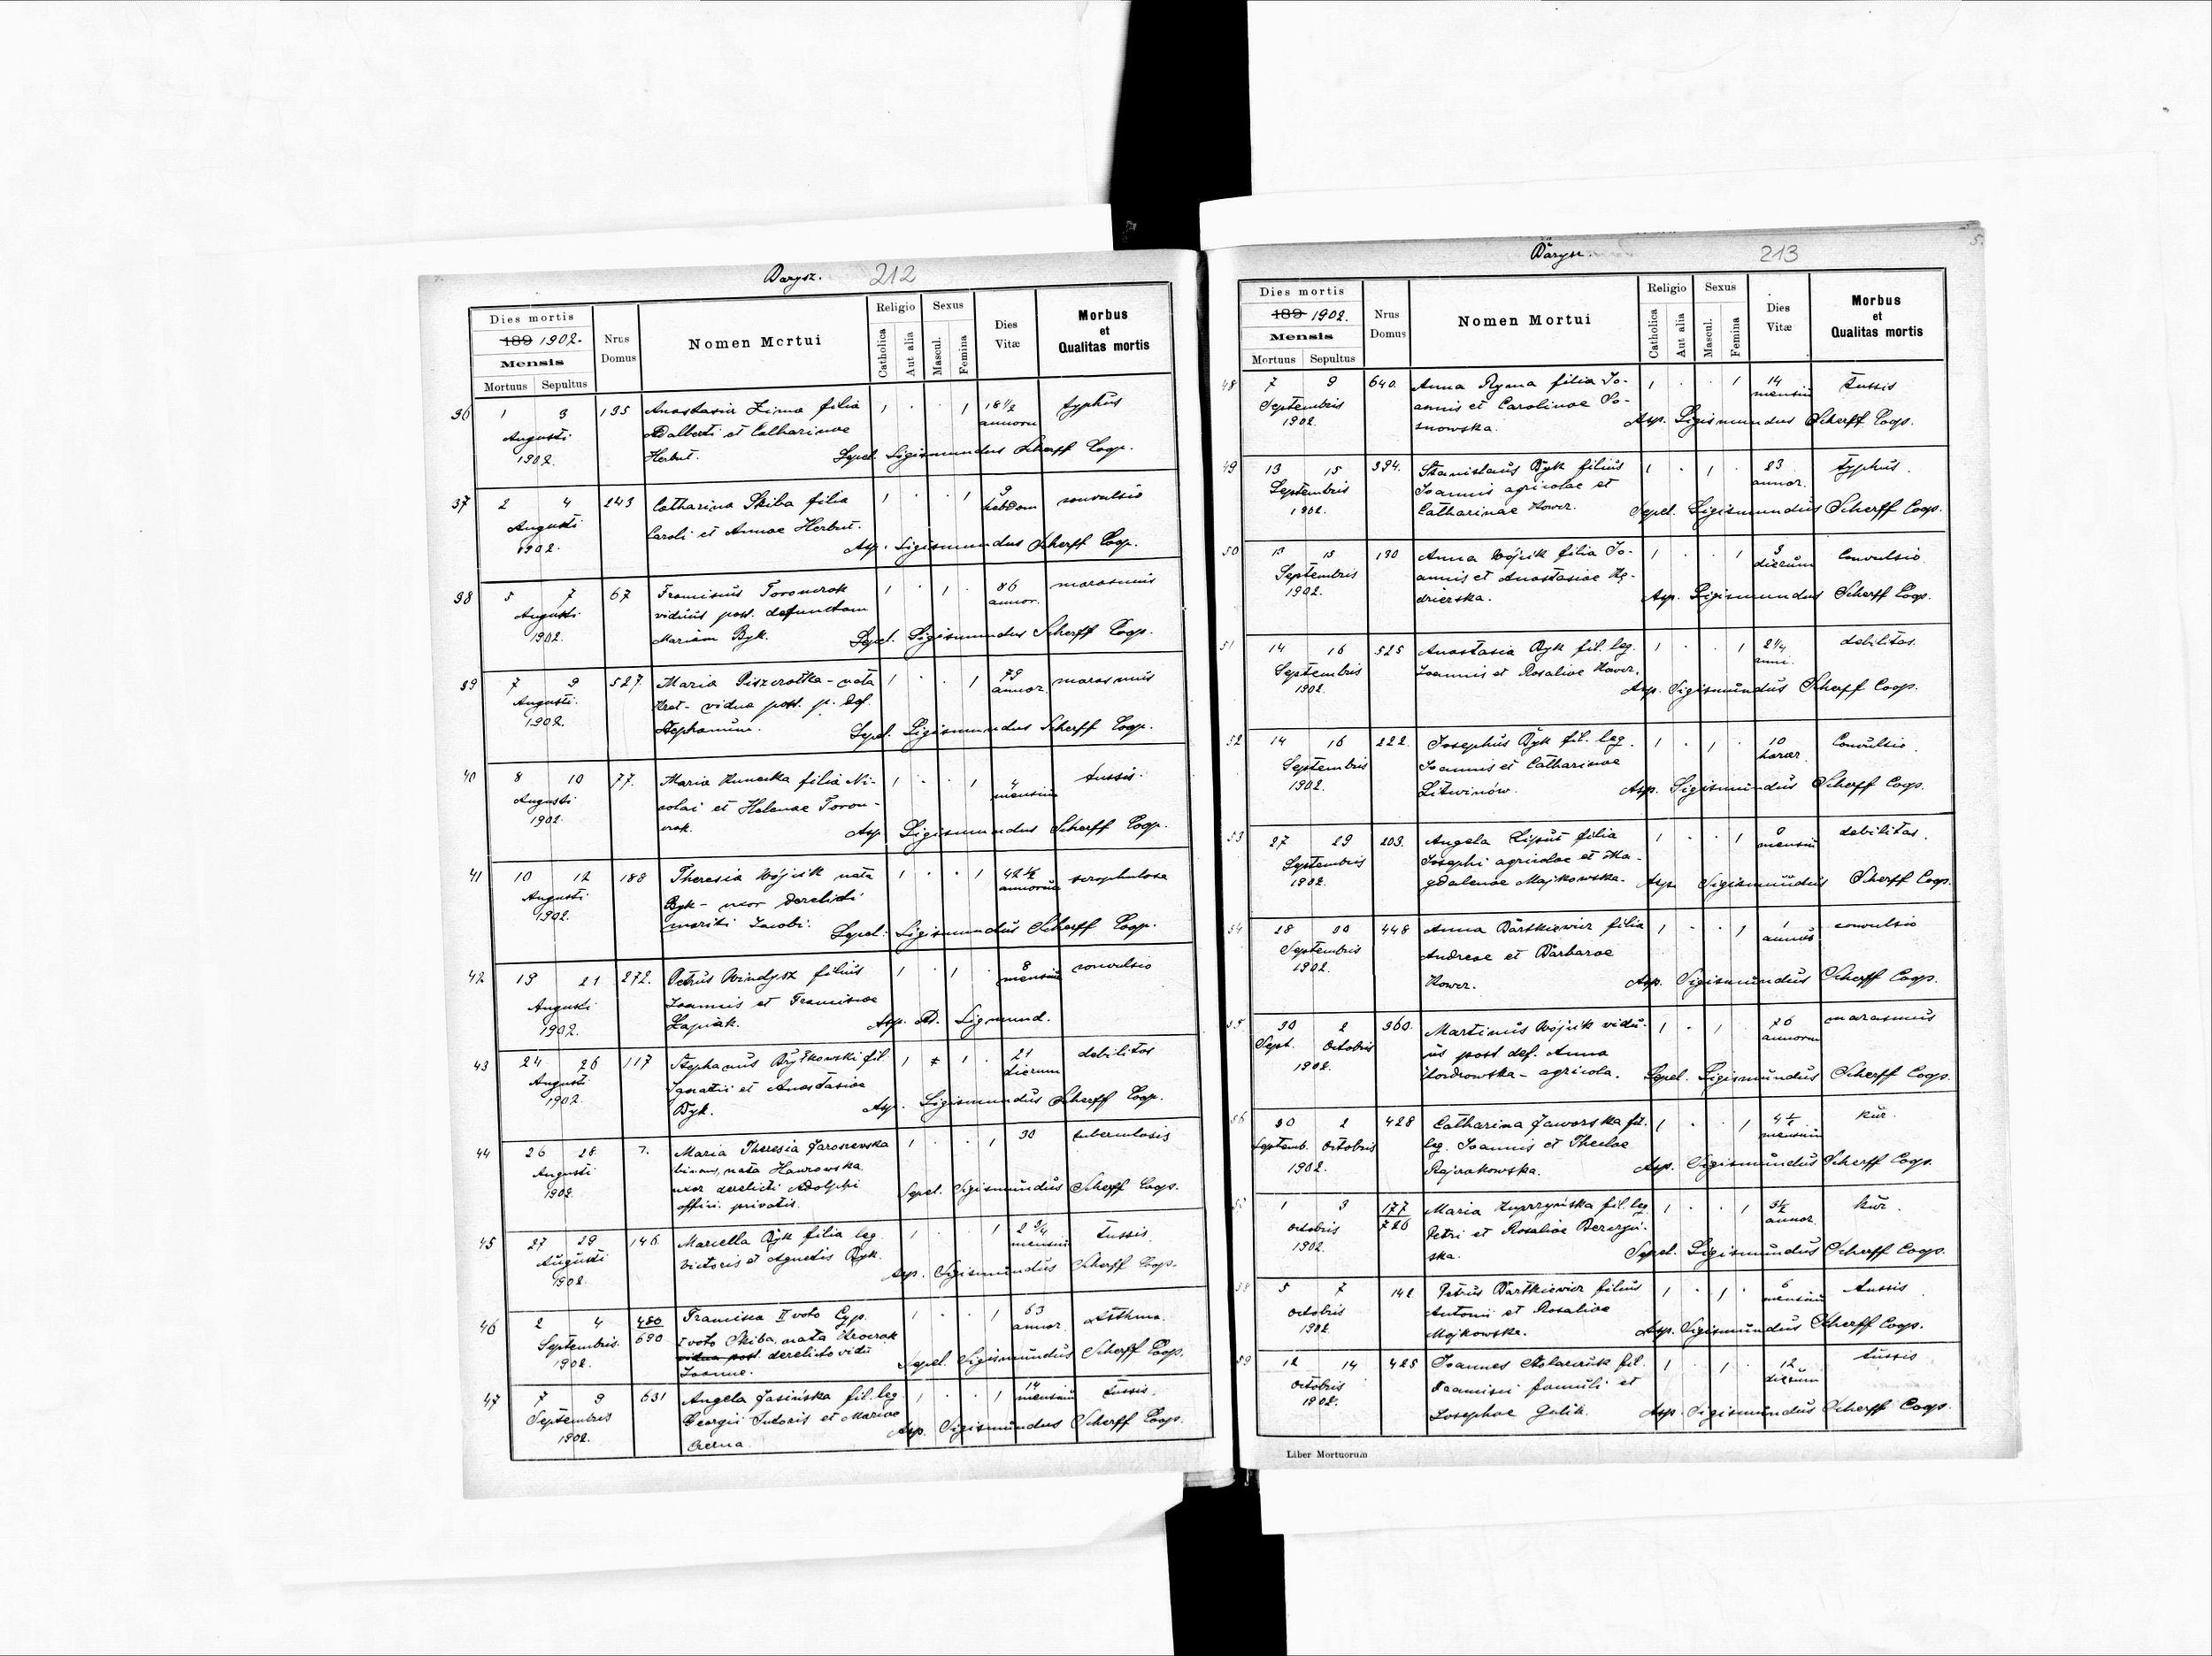 Barysz. 212
Dies mortis
189 1902.
Mensis
Mortuus Sepultus
Nrus Domus
Nomen Mortui
Religio
Catholica
Aut alia
Sexus
Mascul.
Femina
Dies Vitæ
Morbus et Qualitas mortis
36 1 3 135 Anastasia Zima filia 1 . . 1 18 1/2 typhus
Augusti Adalberti et Catharinae annoru
1902. Herbut. Sepel. Sigismundus Scherff Coop.
37 2 4 243 Catharina Skiba filia 1 . . 1 9 convulsio
Augusti Caroli et Annae Herbut. hebdom
1902. Asp. Sigismundus Scherff Coop.
38 5 7 67 Franciscus Toronczak 1 . 1 . 86 marasmus
Augusti viduus post. defunctam annor.
1902. Mariam Byk. Sepel. Sigismundus Scherff Coop.
39 7 9 527. Maria - nata 1 . . 1 79 marasmus
Augusti. - vidua post. p. def. annor.
1902. Stephanum. Sepel. Sigismundus Scherff Coop.
40 8 10 77. Maria filia Ni- 1 . . 1 4 tussis.
Augusti colai et Helenae Toron- mensiu
1902. czak. Asp. Sigismundus Scherff Coop.
41 10 12 188 Theresia Wójcik nata 1 . . 1 42 1/2 scrophulosa
Augusti Byk - uxor derelicti annorum
1902. mariti Jacobi. Sepel. Sigismundus Scherff Coop.
42 19 21 272. Petrus filius 1 . 1 . 8 convulsio
Augusti Joannis et Franciscae mensiu
1902. Łapiak. Asp. Sigmund.
43 24 26 117 Stephanus Bryłkowski fil. 1 * 1 . 21 debilitas
Augusti Ignatii et Anastasiae dierum
1902. Byk. Asp. Sigismundus Scherff Coop.
44 26 28 7. Maria Theresia Jaroszewska 1 . . 1 30 tuberculosis
Augusti nata
1902. uxor derelicti Adolphi Sepel. Sigismundus Scherff Coop.
offici. privatis.
45 27 29 146. Marcella Byk filia leg. 1 . . 1 2 3/4 tussis
Augusti Victoris et Agnetis Byk. mensiu
1902. Asp. Sigismundus Scherff Coop.
46 2 4 480 Francisca II voto Cyp. 1 . . 1 63 Asthma.
Septembris. 690 I voto Skiba, nata annor.
1902. vidua post derelicto vidu Sepel. Sigismundus Scherff Coop.
Joanne.
47 7 9 631 Angela Jasińska fil. leg. 1 . . 1 14 tussis.
Septembris Georgii Sutoris et Mariae mensiu
1902. Czerna. Asp. Sigismundus Scherff Coop.
Barysz. 213
Dies mortis
189 1902.
Mensis
Mortuus Sepultus
Nrus Domus
Nomen Mortui
Religio
Catholica
Aut alia
Sexus
Mascul.
Femina
Dies Vitæ
Morbus et Qualitas mortis
48 7 9 640. Anna Ryma filia Jo- 1 . . 1 14 tussis
Septembris annis et Carolinae So- mensiu
1902. snowska. Asp. Sigismundus Scherff Coop.
49 13 15 394. Stanislaus Byk filius 1 . 1 . 23 typhus.
Septembris Joannis agricolae et annor.
1902. Catharinae Kower. Sepel. Sigismundus Scherff Coop.
50 13 15 130 Anna Wójcik filia Jo- 1 . . 1 9 Convulsio
Septembris annis et Anastasiae Kę- dierum
1902. dzierska. Asp. Sigismundus Scherff Coop.
51 14 16 525 Anastasia Byk fil. leg. 1 . . 1 2 1/4 debilitas.
Septembris Joannis et Rosaliae Kower. anni.
1902. Asp. Sigismundus Scherff Coop.
52 14 16 222. Josephus Byk fil. leg. 1 . 1 . 10 Convulsio.
Septembris Joannis et Catharinae horar.
1902. Litwinów. Asp. Sigismundus Scherff Coop.
53 27 29 203. Angela filia 1 . . 1 mensiu debilitas.
Septembris Josephi agricolae et Ma-
1902. gdalenae Majkowska. Asp. Sigismundus Scherff Coop.
54 28 30 448 Anna Bartkiewicz filia 1 . . 1 1 convulsio
Septembris Andreae et Barbarae annus
1902. Kower. Asp. Sigismundus Scherff Coop.
55 30 2 360. Martinus Wójcik vidu- 1 . 1 76 marasmus
Sept. Octobris us post def. Anna annoru
1902. - agricola. Sepel. Sigismundus Scherff Coop.
56 30 2 428 Catharina Jaworska fil. 1 . . 1 4 1/2 kur.
Septemb. Octobris leg. Joannis et Theclae mensiu
1902. Rajrakowska. Asp. Sigismundus Scherff Coop.
57 1 3 177 Maria Kuprzyńska fil. leg. 1 . . 1 3 1/2 kur.
Octobris 726 Petri et Rosaliae annor.
1902. ska. Sepel. Sigismundus Scherff Coop.
58 5 7 142 Petrus Bartkiewicz filius 1 . 1 . 6 tussis
Octobris Antonii et Rosaliae mensiu
1902. Majkowska. Asp. Sigismundus Scherff Coop.
59 12 14 425 Joannes Stolarczuk fil. 1 . 1 . 12 tussis
Octobris Francisci famuli et dierum
1902. Josephae Gulik. Asp. Sigismundus Scherff Coop.
Liber Mortuorum